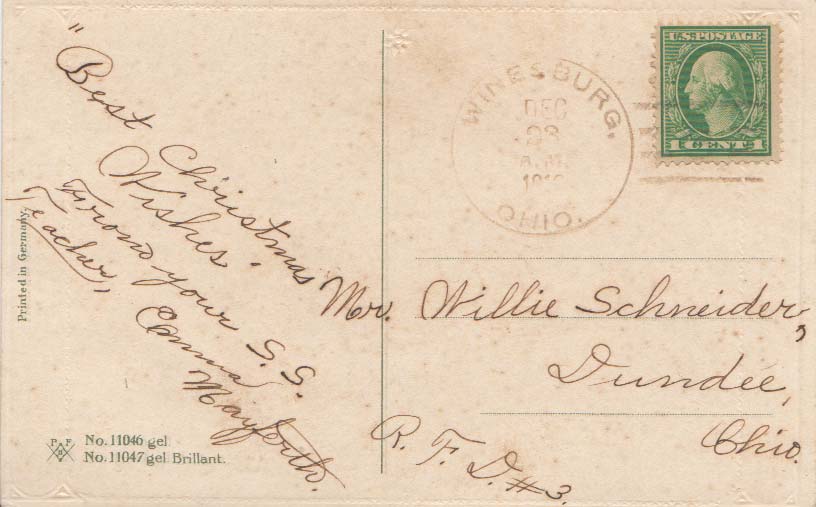 "Best Christmas
Wishes.
From your S. S.
Teacher,
Emma
Mayforth.
Printed in Germany.
P F
B
No. 11046 gel
No. 11047 gel Brillant.
WINESBURG,
DEC
23
A.M.
OHIO.
U.S. POSTAGE
1 CENT 1
Mr. Willie Schneider,
Dundee,
Ohio.
R. F. D. #3.